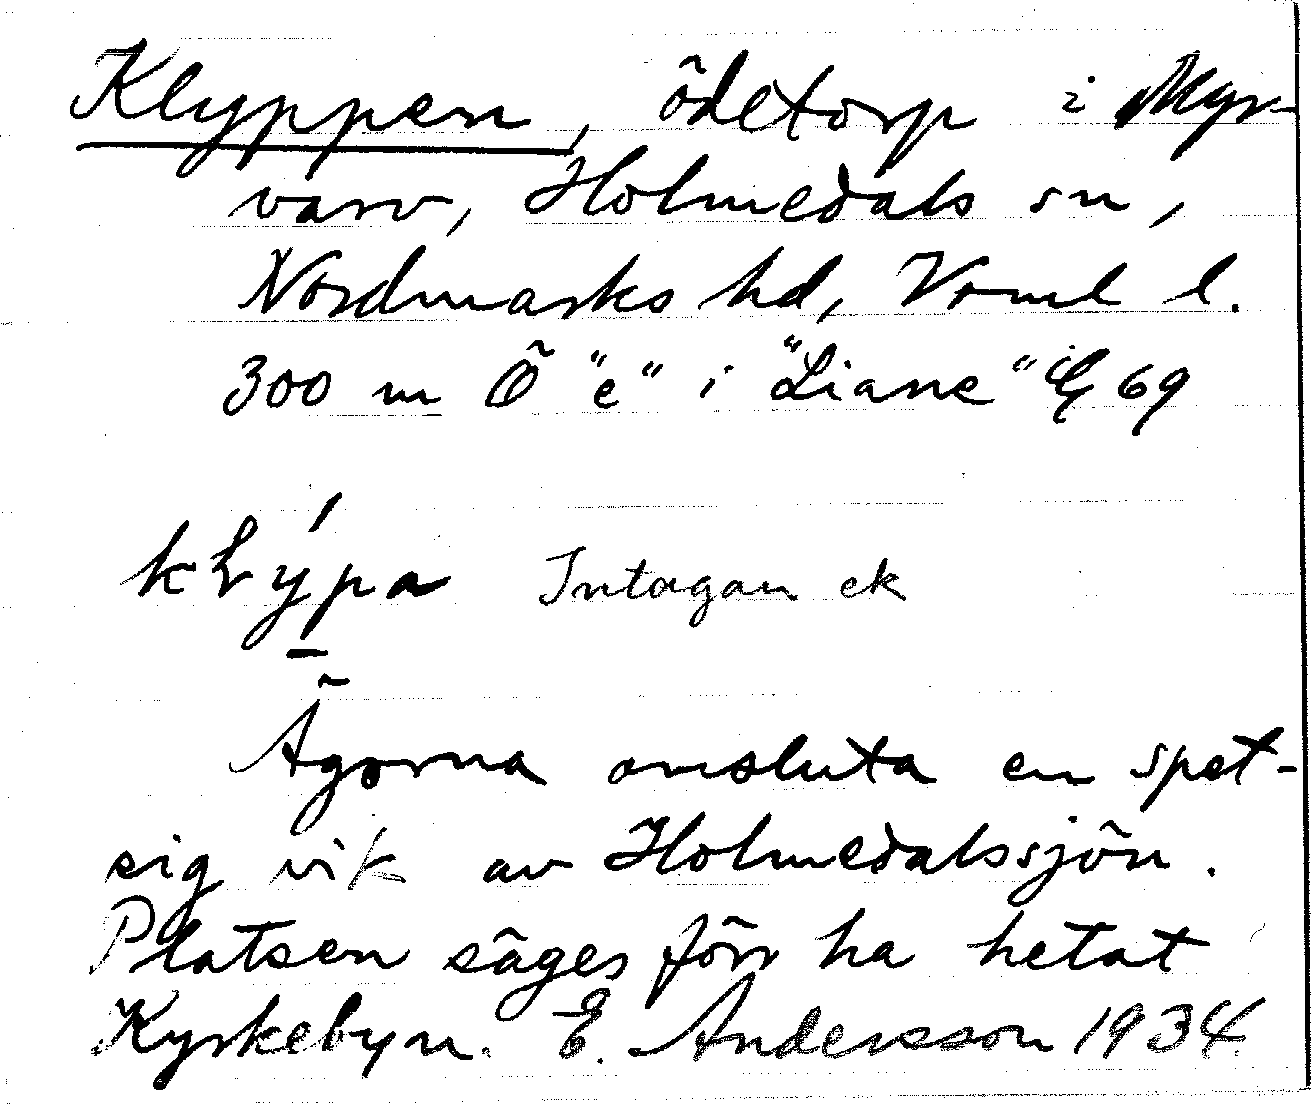 Klyppen, ödetorp i Myr-
varv, Holmedals sn,
Nordmarks hd, Vrml l.
300 m Ö "e" i "Liane" G 69
kLýpa Intagan ek
Ägorna omsluta en spet-
sig vik av Holmedalssjön.
Platsen säges förr ha hetat
Kyrkebyn. E. Andersson 1934